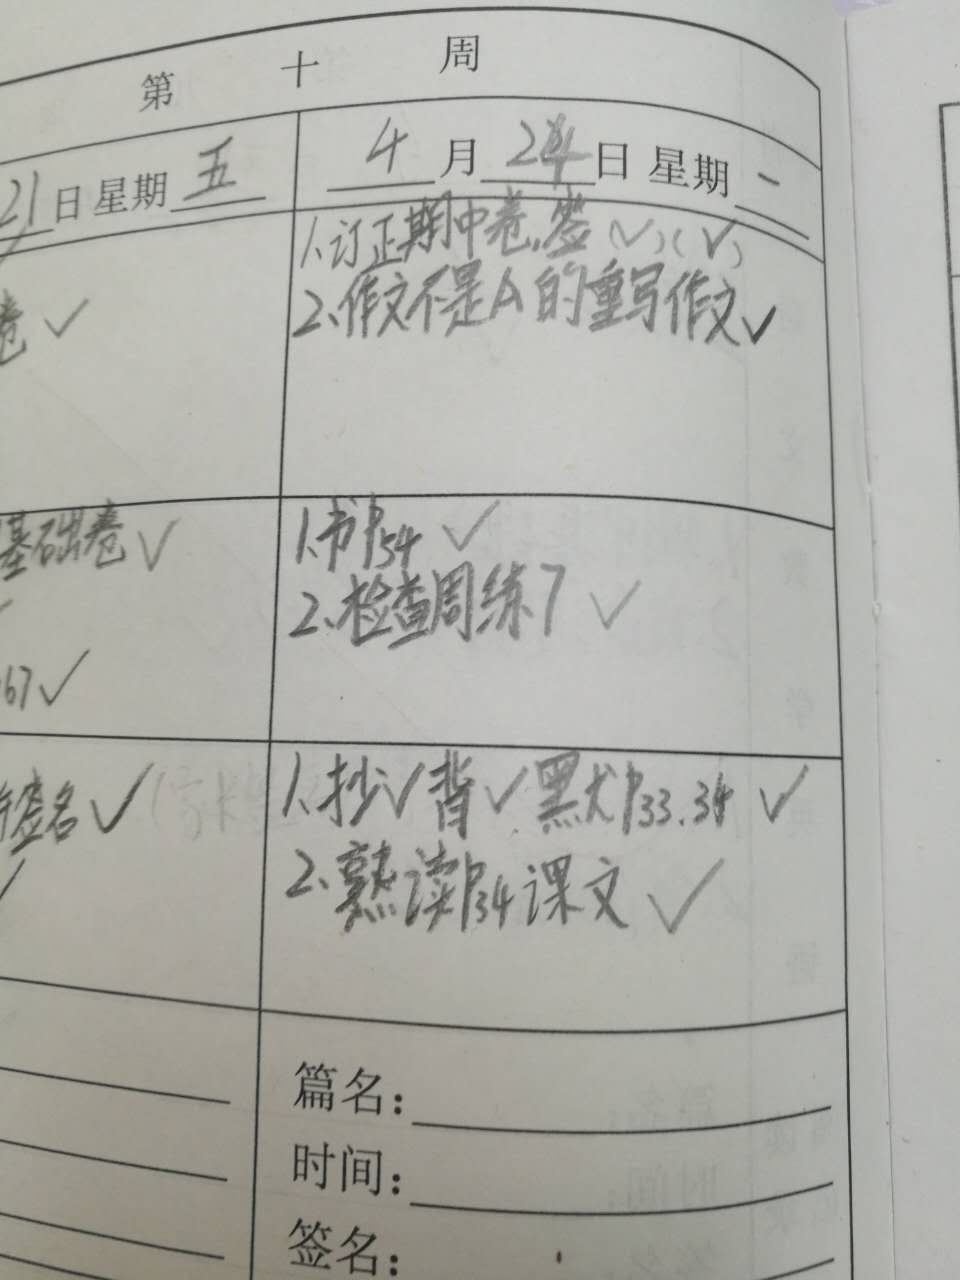 第 十 周
21日 星期 五
4月24日 星期 一
卷 ✓
1.订正期中卷,签(✓)(✓)
2.作文不是A的重写作文✓
基础卷 ✓
67 ✓
1.书P54 ✓
2.检查周练7 ✓
签名 ✓
1.抄✓背✓黑犬P33.34 ✓
2.熟读P34课文 ✓
篇名：
时间：
签名：